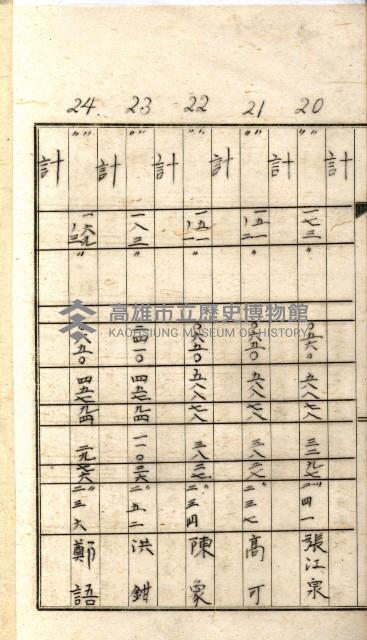 20 21 22 23 24
計 計 計 計 計 計
一七三 〃 〇五六〇 五八八七八 三二九七 二四一 張江泉
一五一 〃 〇六五〇 五八八七八 三八二七 二三七 高可
一五一 〃 〇六五〇 五八八七八 三八二七 二三四 陳象
一八三 〃 二四〇 四五七九四 一一〇三六 二五二 洪鉗
一六九 〃 六五〇 四五七九四 二九七六 二三六 鄭語
高雄市立歷史博物館
KAOHSIUNG MUSEUM OF HISTORY